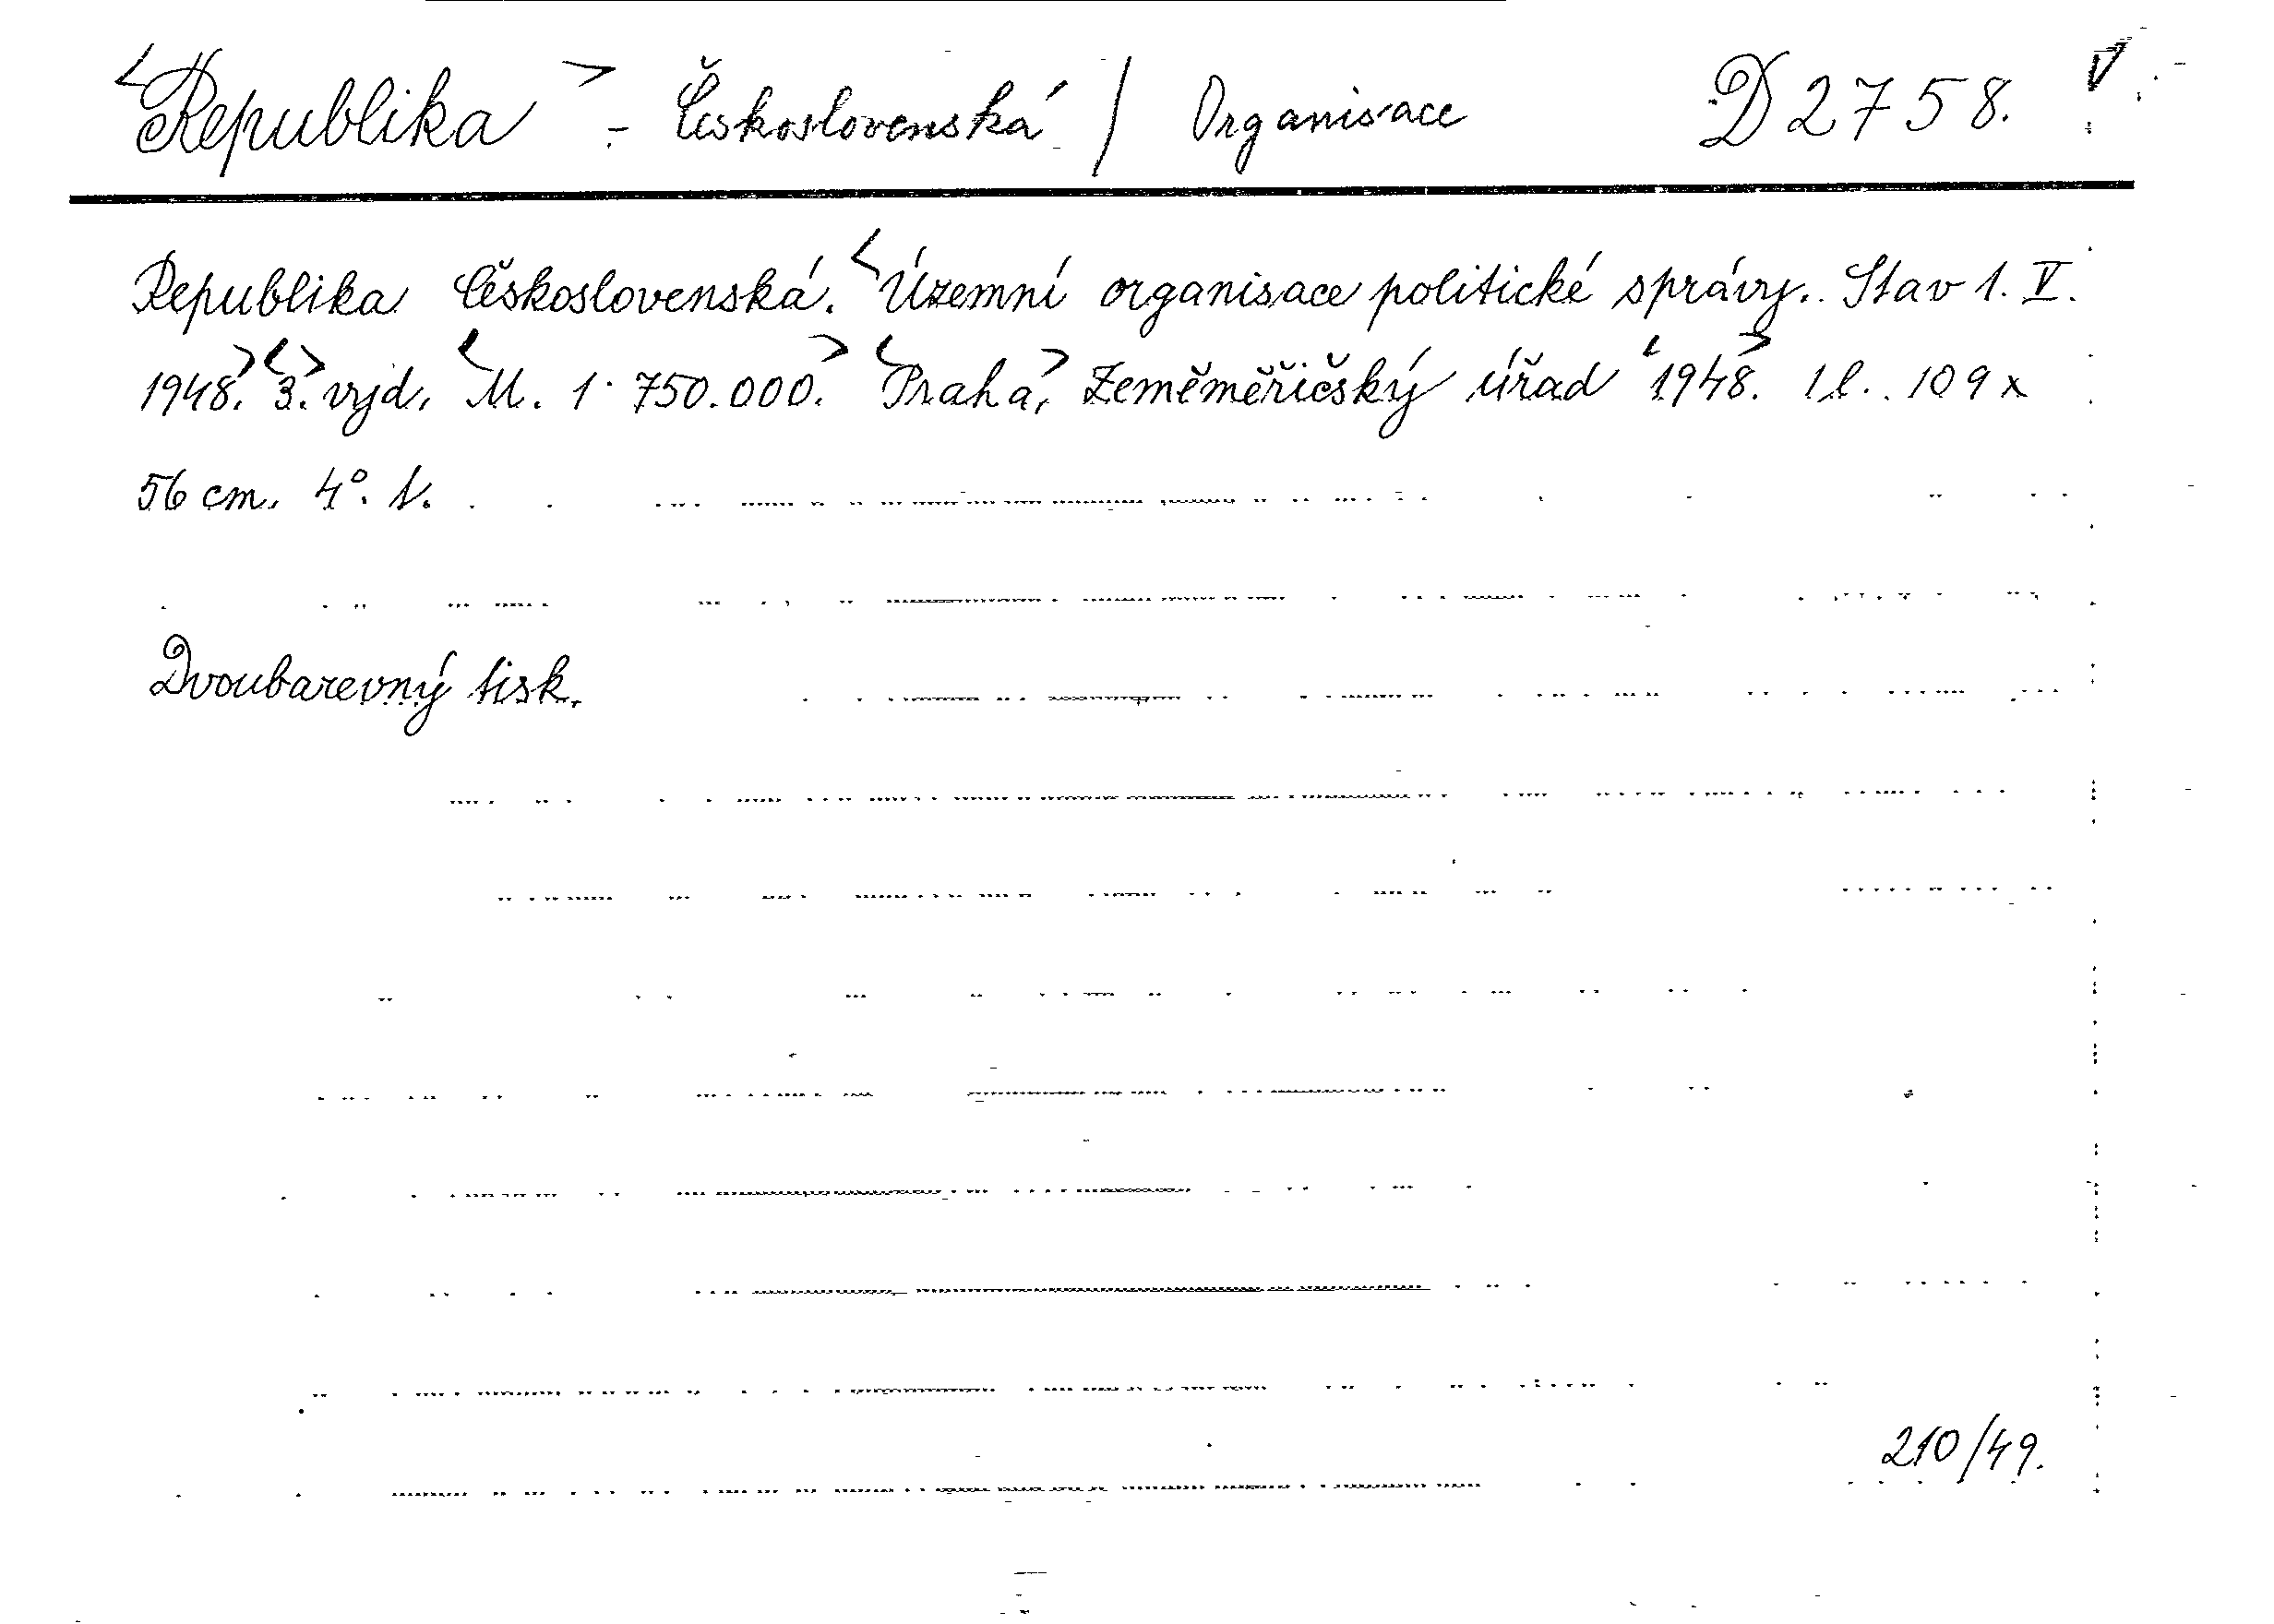 <Republika> - Československá / Organisace D 2758. V
Republika Československá. <Územní organisace politické správy. Stav 1. V.
1948.> <3.> vyd. <M. 1:750.000.> <Praha,> Zeměměřičský úřad <1948.> 1 l. 109 x
56 cm. 4°. 1.
Dvoubarevný tisk.
210/49.